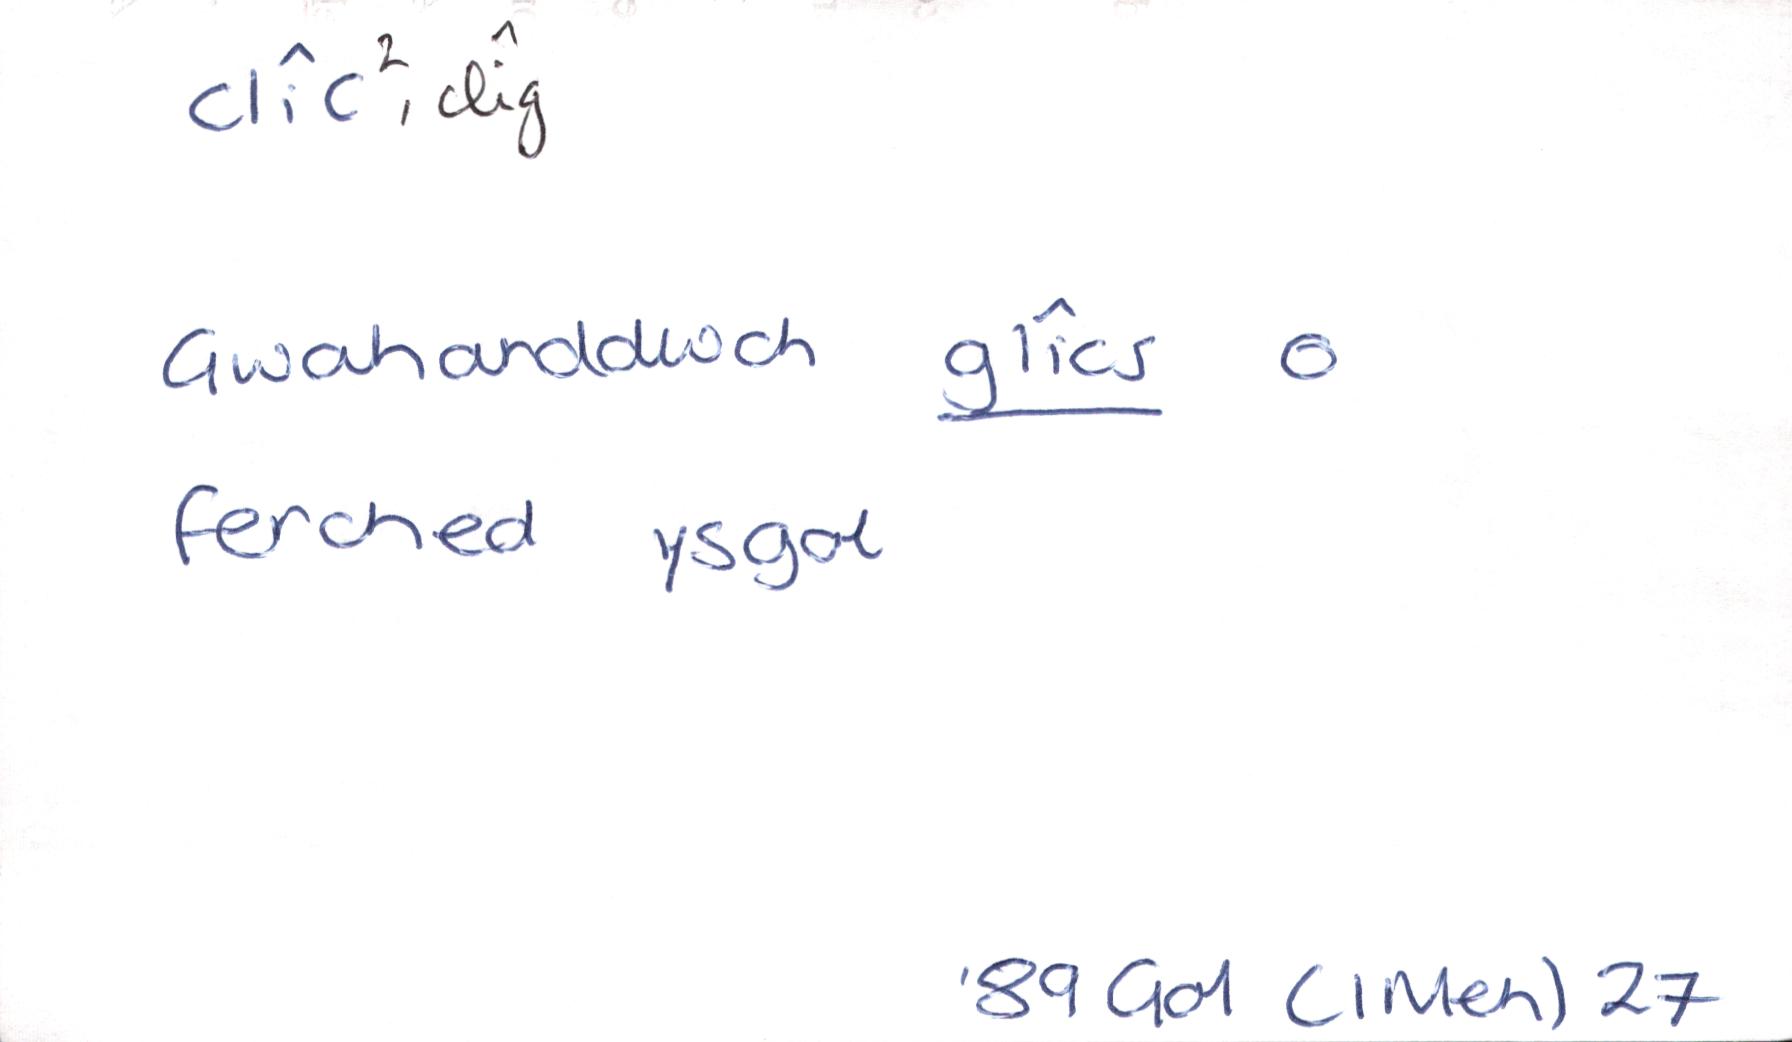 clîc², clîg
Gwahanddwoch glîcs o
ferched ysgol
'89 Gol (1 Meh) 27